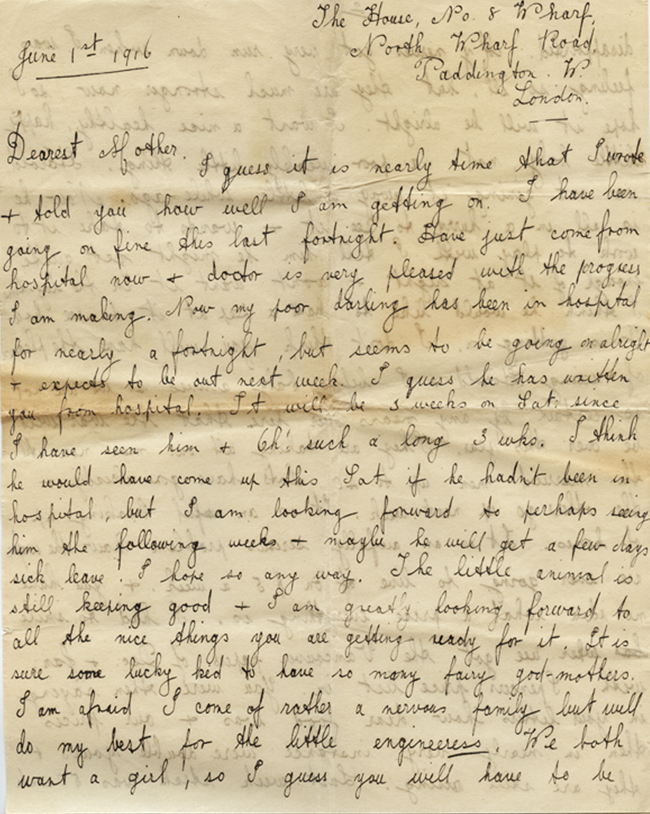 The House, No. 8 Wharf,
June 1st 1916
North Wharf Road
Paddington. W.
London.
Dearest Mother.
I guess it is nearly time that I wrote
+ told you how well I am getting on. I have been
going on fine this last fortnight. Have just come from
hospital now + doctor is very pleased with the progress
I am making. Now my poor darling has been in hospital
for nearly a fortnight, but seems to be going on alright
+ expects to be out next week. I guess he has written
you from hospital. It will be 3 weeks on Sat: since
I have seen him + Oh! such a long 3 wks. I think
he would have come up this Sat if he hadn't been in
hospital, but I am looking forward to perhaps seeing
him the following weeks + maybe he will get a few days
sick leave. I hope so any way. The little animal is
still keeping good + I am greatly looking forward to
all the nice things you are getting ready for it. It is
sure some lucky kid to have so many fairy god-mothers.
I am afraid I come of rather a nervous family but will
do my best for the little engineeress. We both
want a girl!, so I guess you will have to be